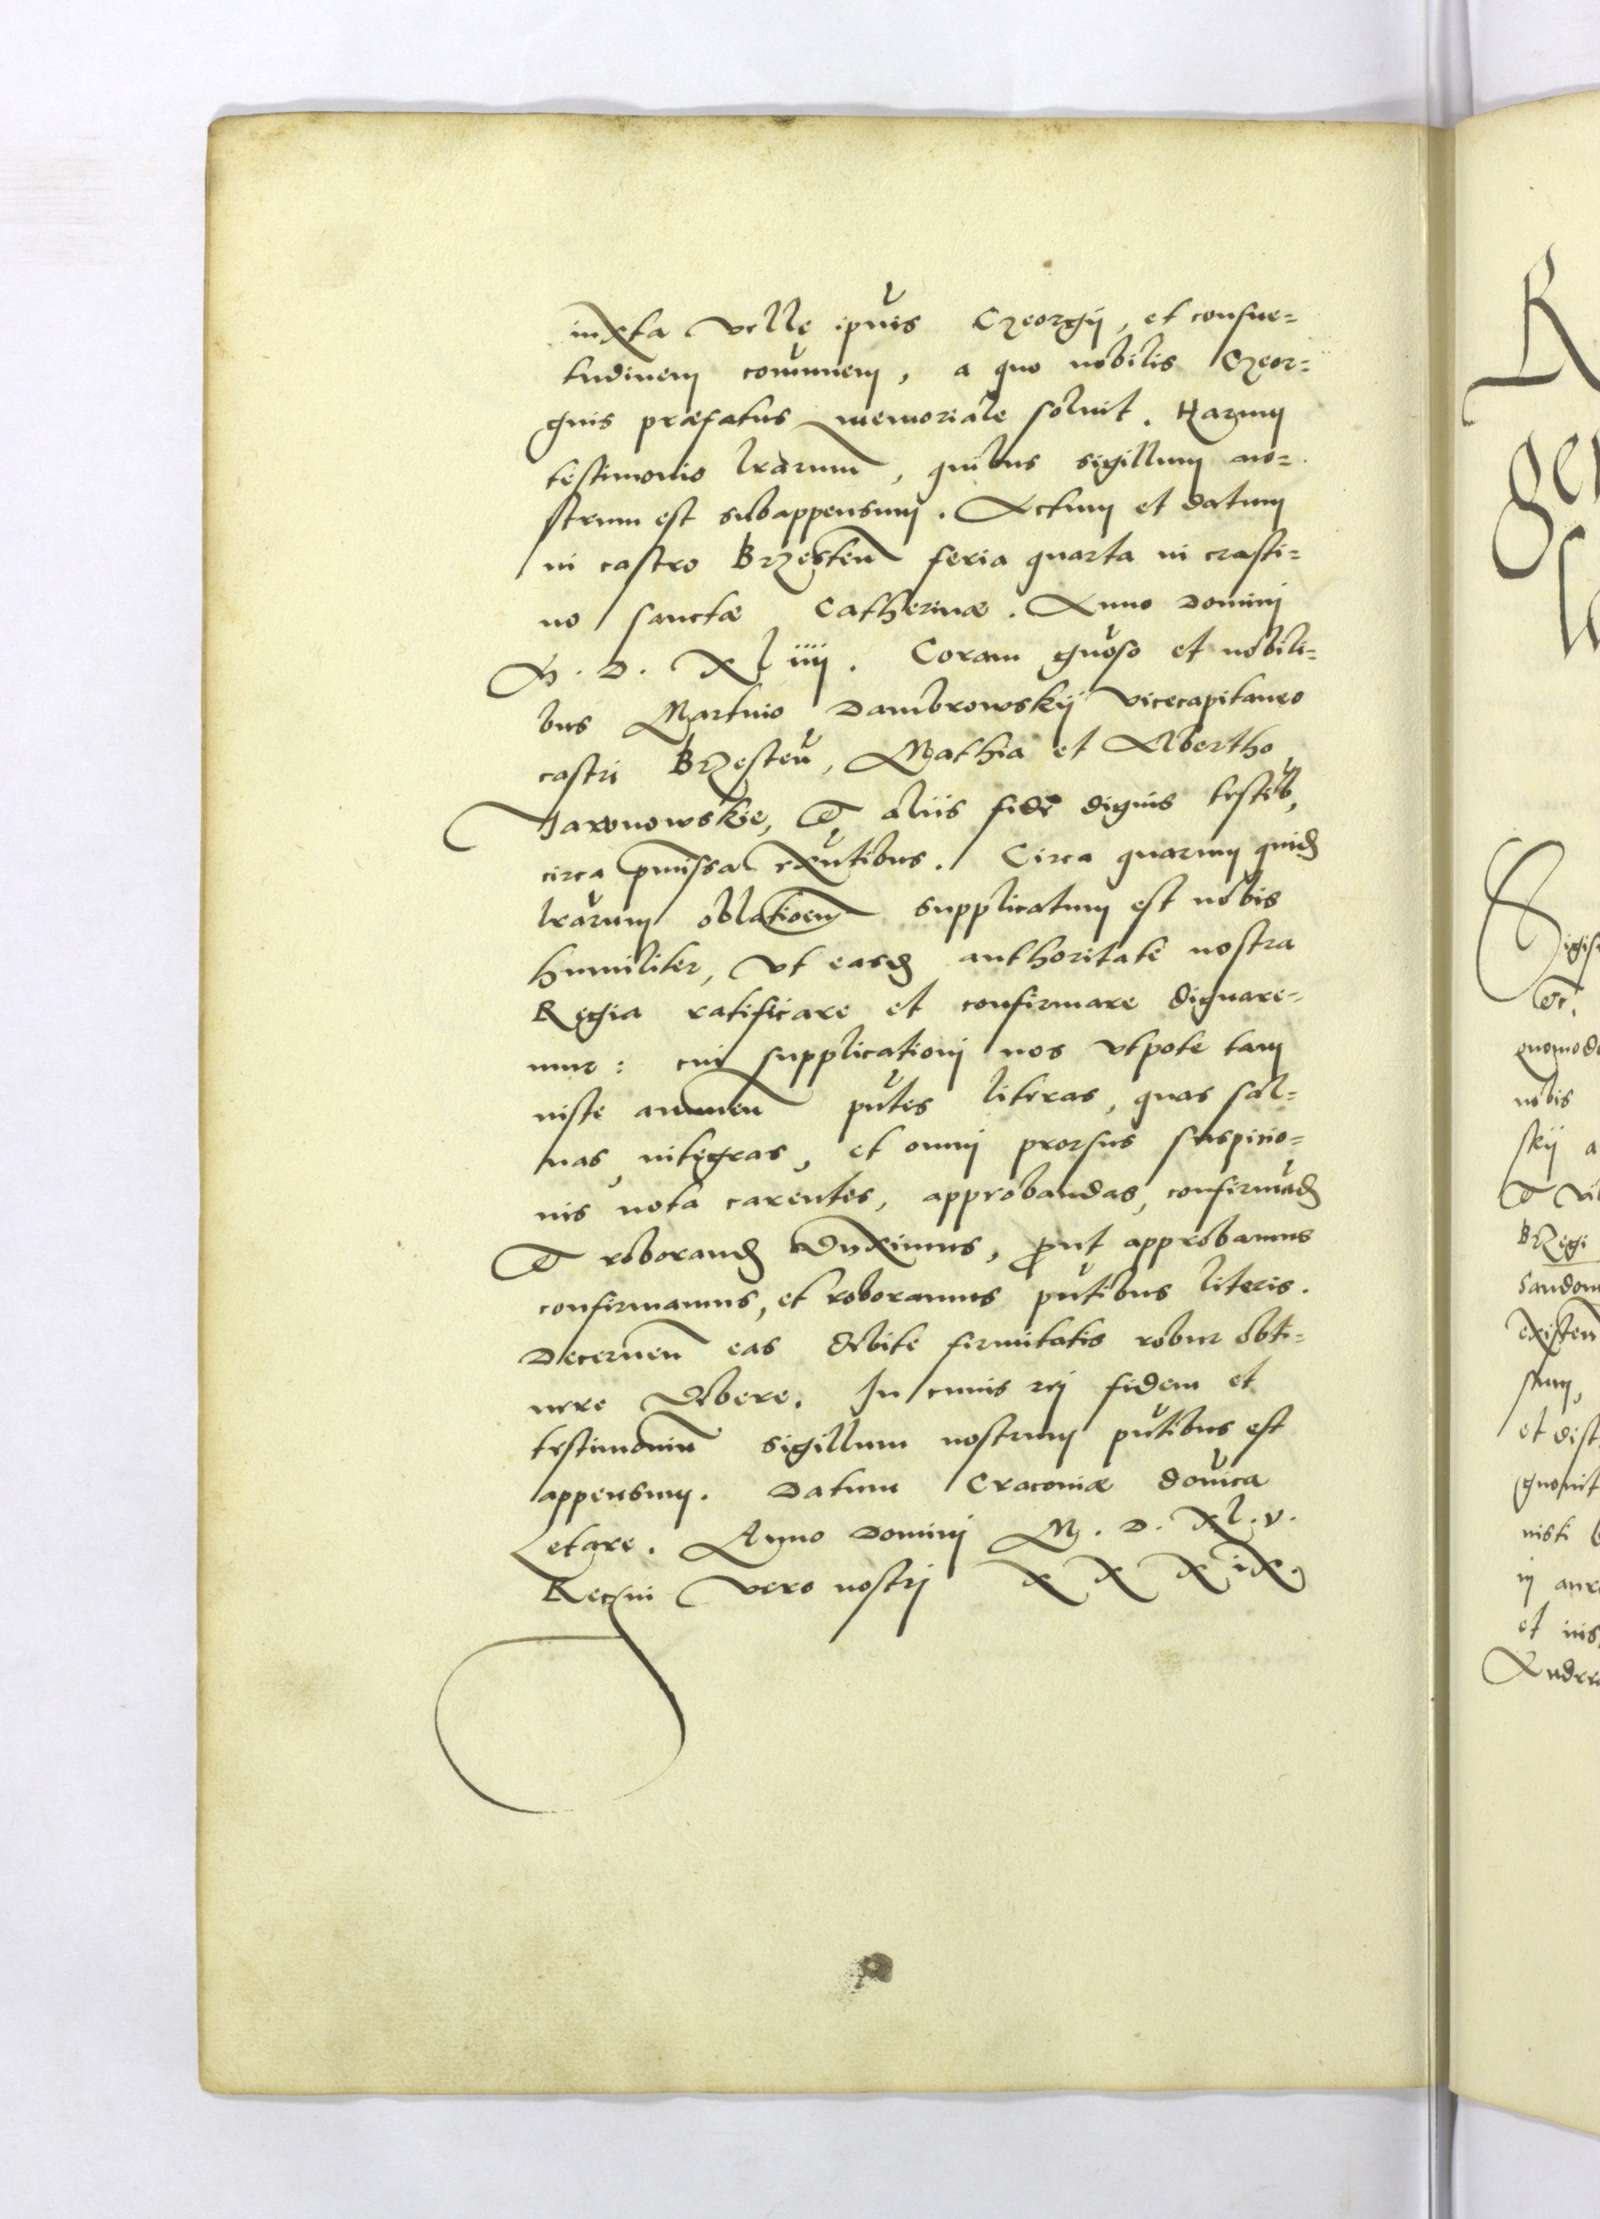 iuxta velle ipius Czeorgij, et consue=
tudinem comunem, a quo nobilis Czeor=
gius præfatus memoriale soluit. Harum
testimonio lrarum, quibus sigillum no=
strum est subappensum. Actum et datum
in castro Brzesten feria quarta in crasti=
no sanctæ Catherinæ. Anno Domini
M. D. XLiiij. Coram gnoso et nobili=
bus Martino Dambrowskij vicecapitaneo
castri Brzesten, Mathia et Alberto
Jaronowskie, Et aliis fide dignis testib,
circa pmissa exntibus. Circa quarum quid
lrarum oblationem supplicatum est nobis
humiliter, vt easd authoritate nostra
Regia ratificare et confirmare dignare=
mur: cui supplicationi nos vtpote tam
iuste annuen pntes literas, quas sal=
uas, integras, et omni prorsus suspicio=
nis nota carentes, approbandas, confirmad
Et roborand duximus, prout approbamus
confirmamus, et roboramus pntibus literis.
Decernen eas debite firmitatis robur obti=
nere debere. In cuius rej fidem et
testimoniu sigillum nostrum pntibus est
appensum. Datum Cracoviæ donica
Letare. Anno Domini M. D. XL. v.
Regni vero nostri X X X i X.
R
ger
Sigis
Etc.
quomodo
nobis
skij a
Et vil
Brzegi
Sandom
existen
sum,
et dist
iusti b
in aur
et ius
Andre